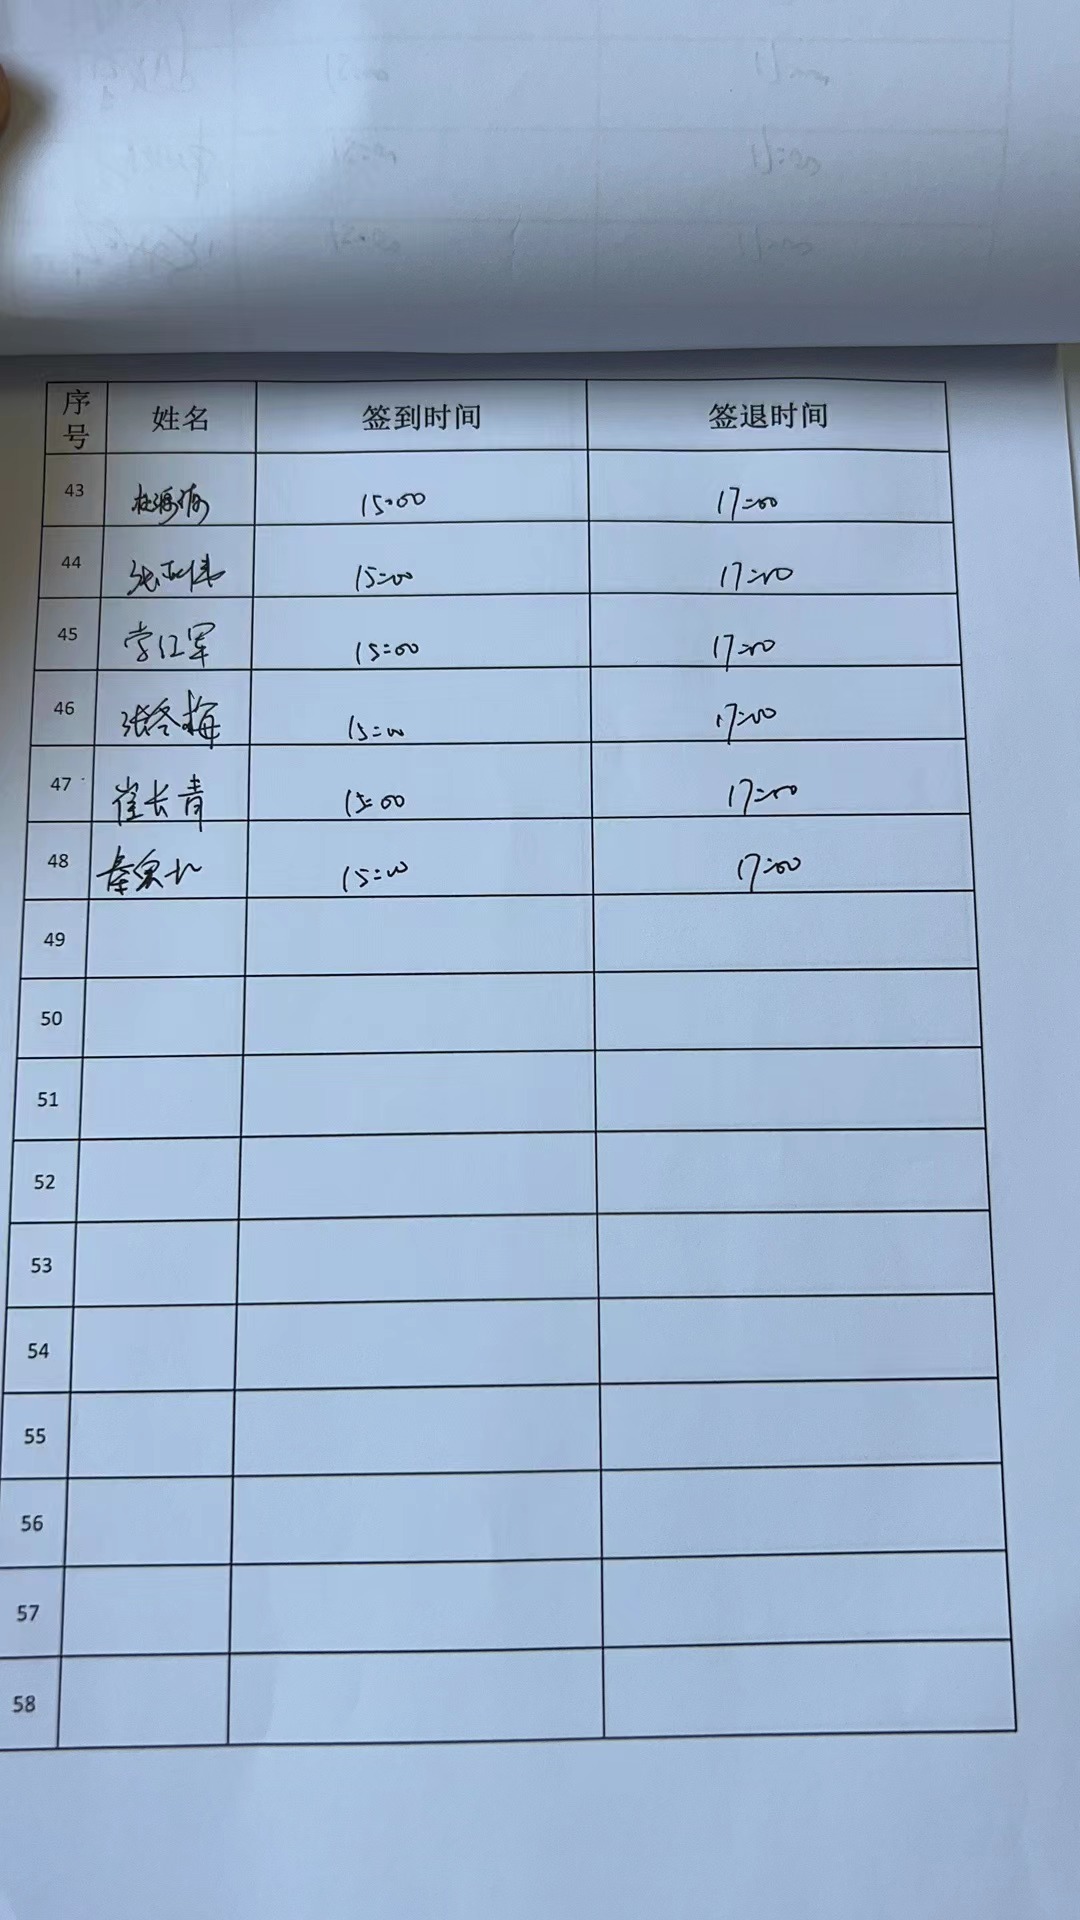 序号 姓名 签到时间 签退时间
43 15:00 17:00
44 张亚伟 15:00 17:00
45 李红军 15:00 17:00
46 张冬梅 15:00 17:00
47 崔长青 15:00 17:00
48 15:00 17:00
49
50
51
52
53
54
55
56
57
58